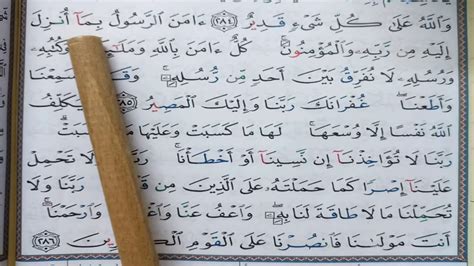 وَاللَّهُ عَلَىٰ كُلِّ شَىْءٍ قَدِيرٌ ٢٨٤ ءَامَنَ الرَّسُولُ بِمَآ أُنزِلَ
إِلَيْهِ مِن رَّبِّهِۦ وَالْمُؤْمِنُونَ ۚ كُلٌّ ءَامَنَ بِاللَّهِ وَكُتُبِهِۦ
وَرُسُلِهِۦ لَا نُفَرِّقُ بَيْنَ أَحَدٍ مِّن رُّسُلِهِۦ ۚ سَمِعْنَا
وَأَطَعْنَا ۖ غُفْرَانَكَ رَبَّنَا وَإِلَيْكَ الْمَصِيرُ ٢٨٥ يُكَلِّفُ
اللَّهُ نَفْسًا إِلَّا وُسْعَهَا ۚ لَهَا مَا كَسَبَتْ وَعَلَيْهَا
رَبَّنَا لَا تُؤَاخِذْنَآ إِن نَّسِينَآ أَوْ أَخْطَأْنَا ۚ وَلَا تَحْمِلْ
عَلَيْنَآ إِصْرًا كَمَا حَمَلْتَهُۥ عَلَى الَّذِينَ مِن رَبَّنَا وَلَا
تُحَمِّلْنَا مَا لَا طَاقَةَ لَنَا بِهِۦ ۖ وَاعْفُ عَنَّا وَاغْفِرْ وَارْحَمْنَآ ۚ
أَنتَ مَوْلَىٰنَا فَانصُرْنَا عَلَى الْقَوْمِ ٢٨٦